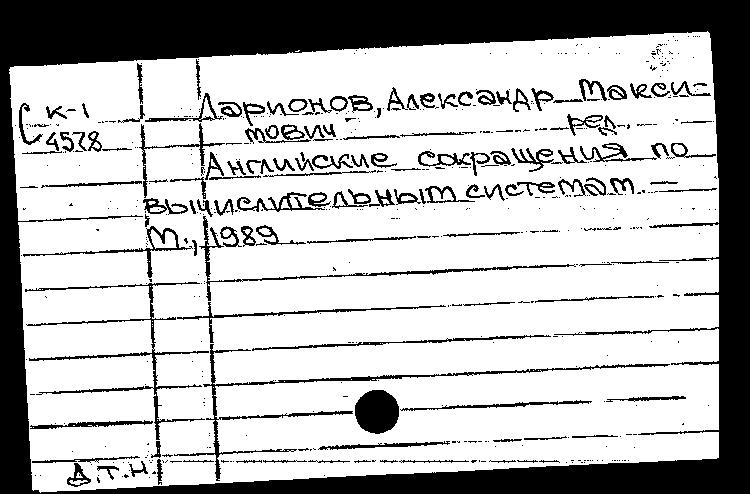 К-1
С 4578
Ларионов, Александр Макси-
мович ред.
Английские сокращения по
вычислительным системам. —
М., 1989.
Д.Т.Н.